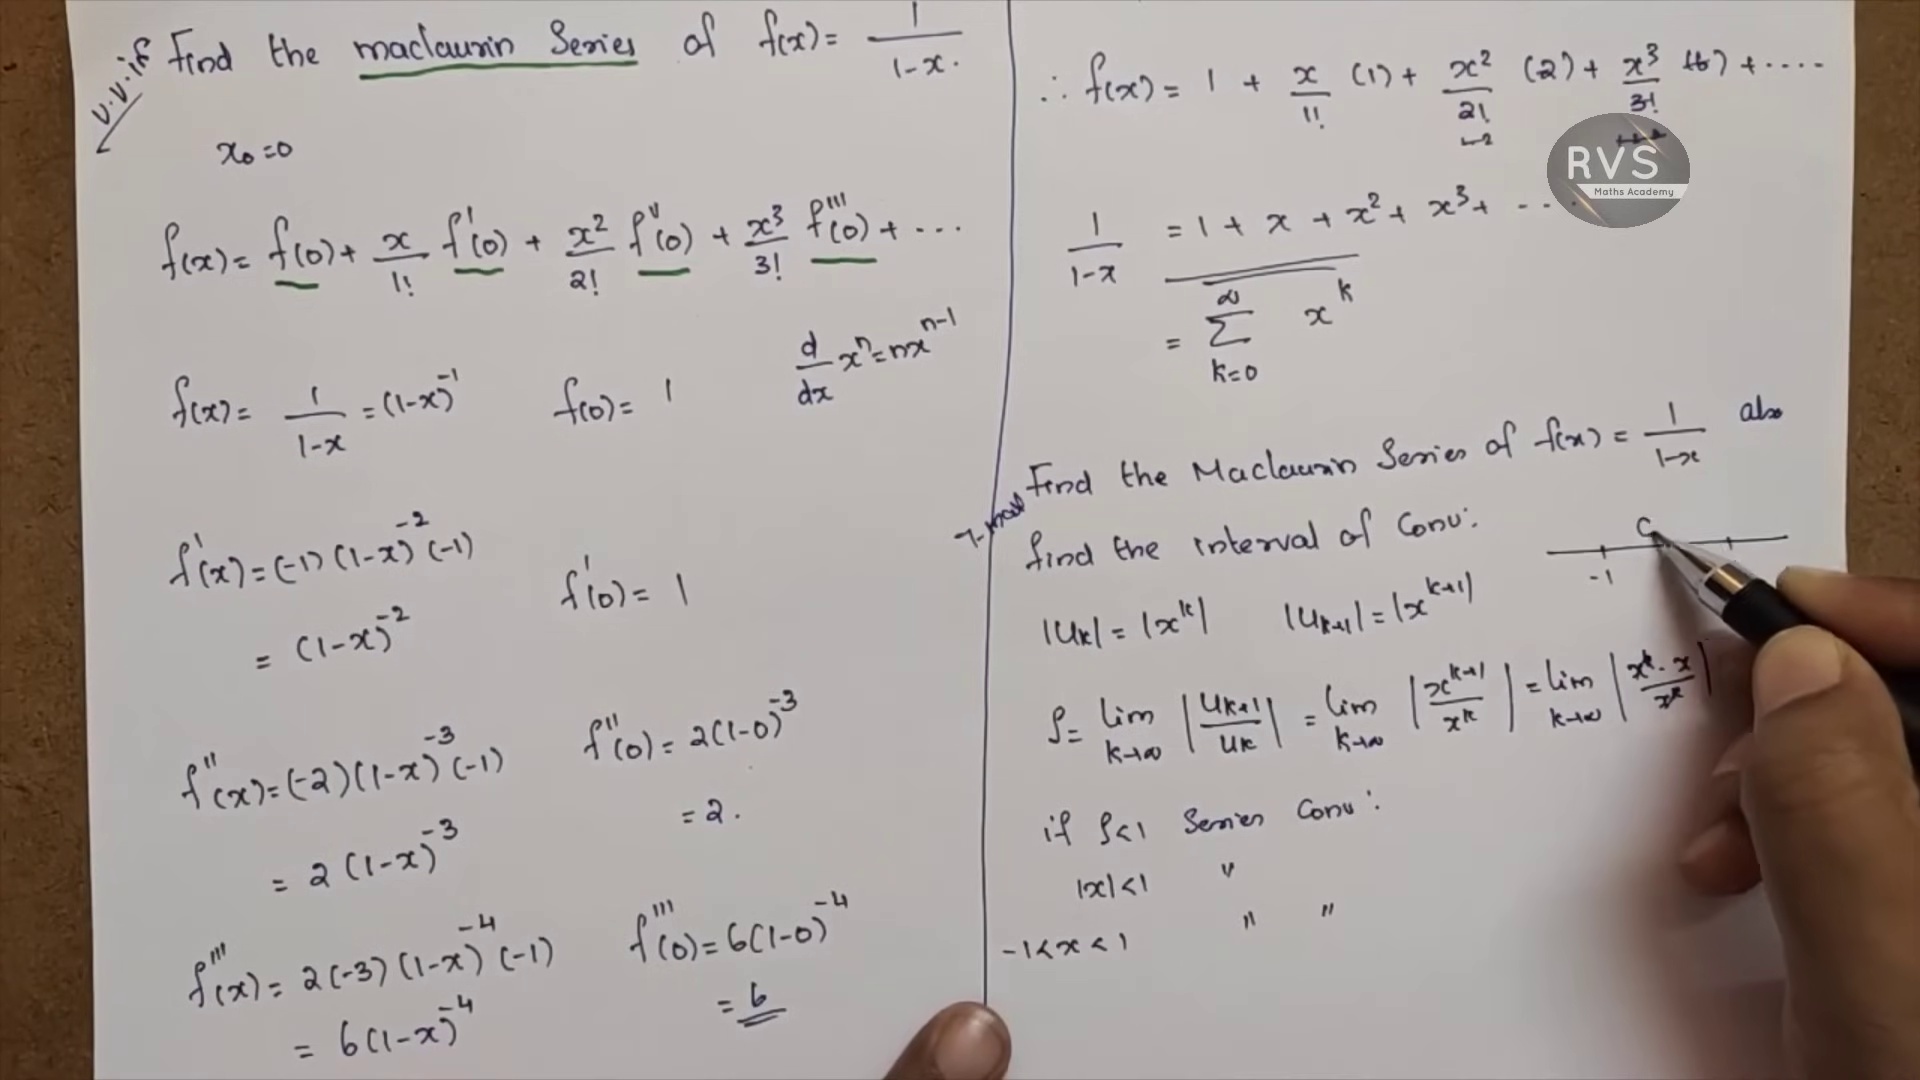 v.v.if
Find the maclaurin Series of f(x) = 1/1-x.
x₀=0
f(x) = f(0) + x/1! f'(0) + x²/2! f''(0) + x³/3! f'''(0) + ...
f(x) = 1/1-x = (1-x)⁻¹ f(0) = 1 d/dx xⁿ = nxⁿ⁻¹
f'(x) = (-1)(1-x)⁻²(-1) f'(0) = 1
= (1-x)⁻²
f''(x) = (-2)(1-x)⁻³(-1) f''(0) = 2(1-0)⁻³
= 2(1-x)⁻³ = 2.
f'''(x) = 2(-3)(1-x)⁻⁴(-1) f'''(0) = 6(1-0)⁻⁴
= 6(1-x)⁻⁴ = 6
∴ f(x) = 1 + x/1! (1) + x²/2! (2) + x³/3! (6) + ....
RVS
Maths Academy
1/1-x = 1 + x + x² + x³ + ...
= ∞∑k=0 xᵏ
7-mark
Find the Maclaurin Series of f(x) = 1/1-x also
find the interval of Conv:
C
-1
|Uₖ| = |xᵏ| |Uₖ₊₁| = |xᵏ⁺¹|
ρ = lim k→∞ |Uₖ₊₁/Uₖ| = lim k→∞ |xᵏ⁺¹/xᵏ| = lim k→∞ |xᵏ·x/xᵏ|
if ρ<1 Series Conv:
|x|<1 "
-1<x<1 " "